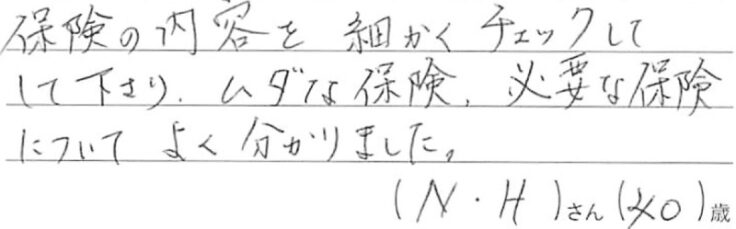 保険の内容を細かくチェックして
して下さり、ムダな保険、必要な保険
についてよく分かりました。
(N・H)さん(40)歳